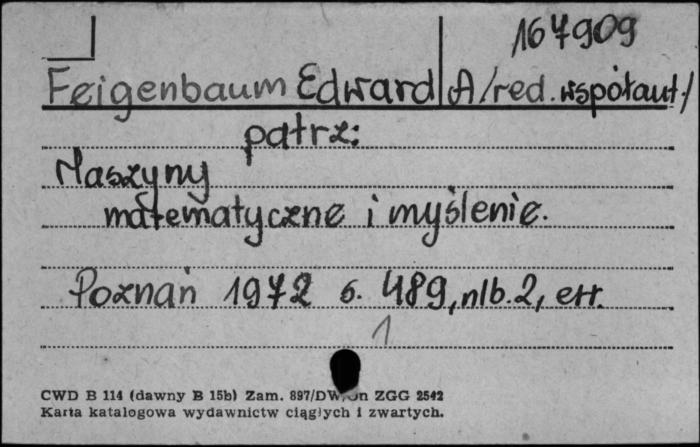 167909
Feigenbaum Edward A/red. współaut./
patrz:
Maszyny
matematyczne i myślenie.
Poznań 1972 s. 489, nlb. 2, err.
1
CWD B 114 (dawny B 15b) Zam. 897/DW/Sn ZGG 2542
Karta katalogowa wydawnictw ciągłych i zwartych.